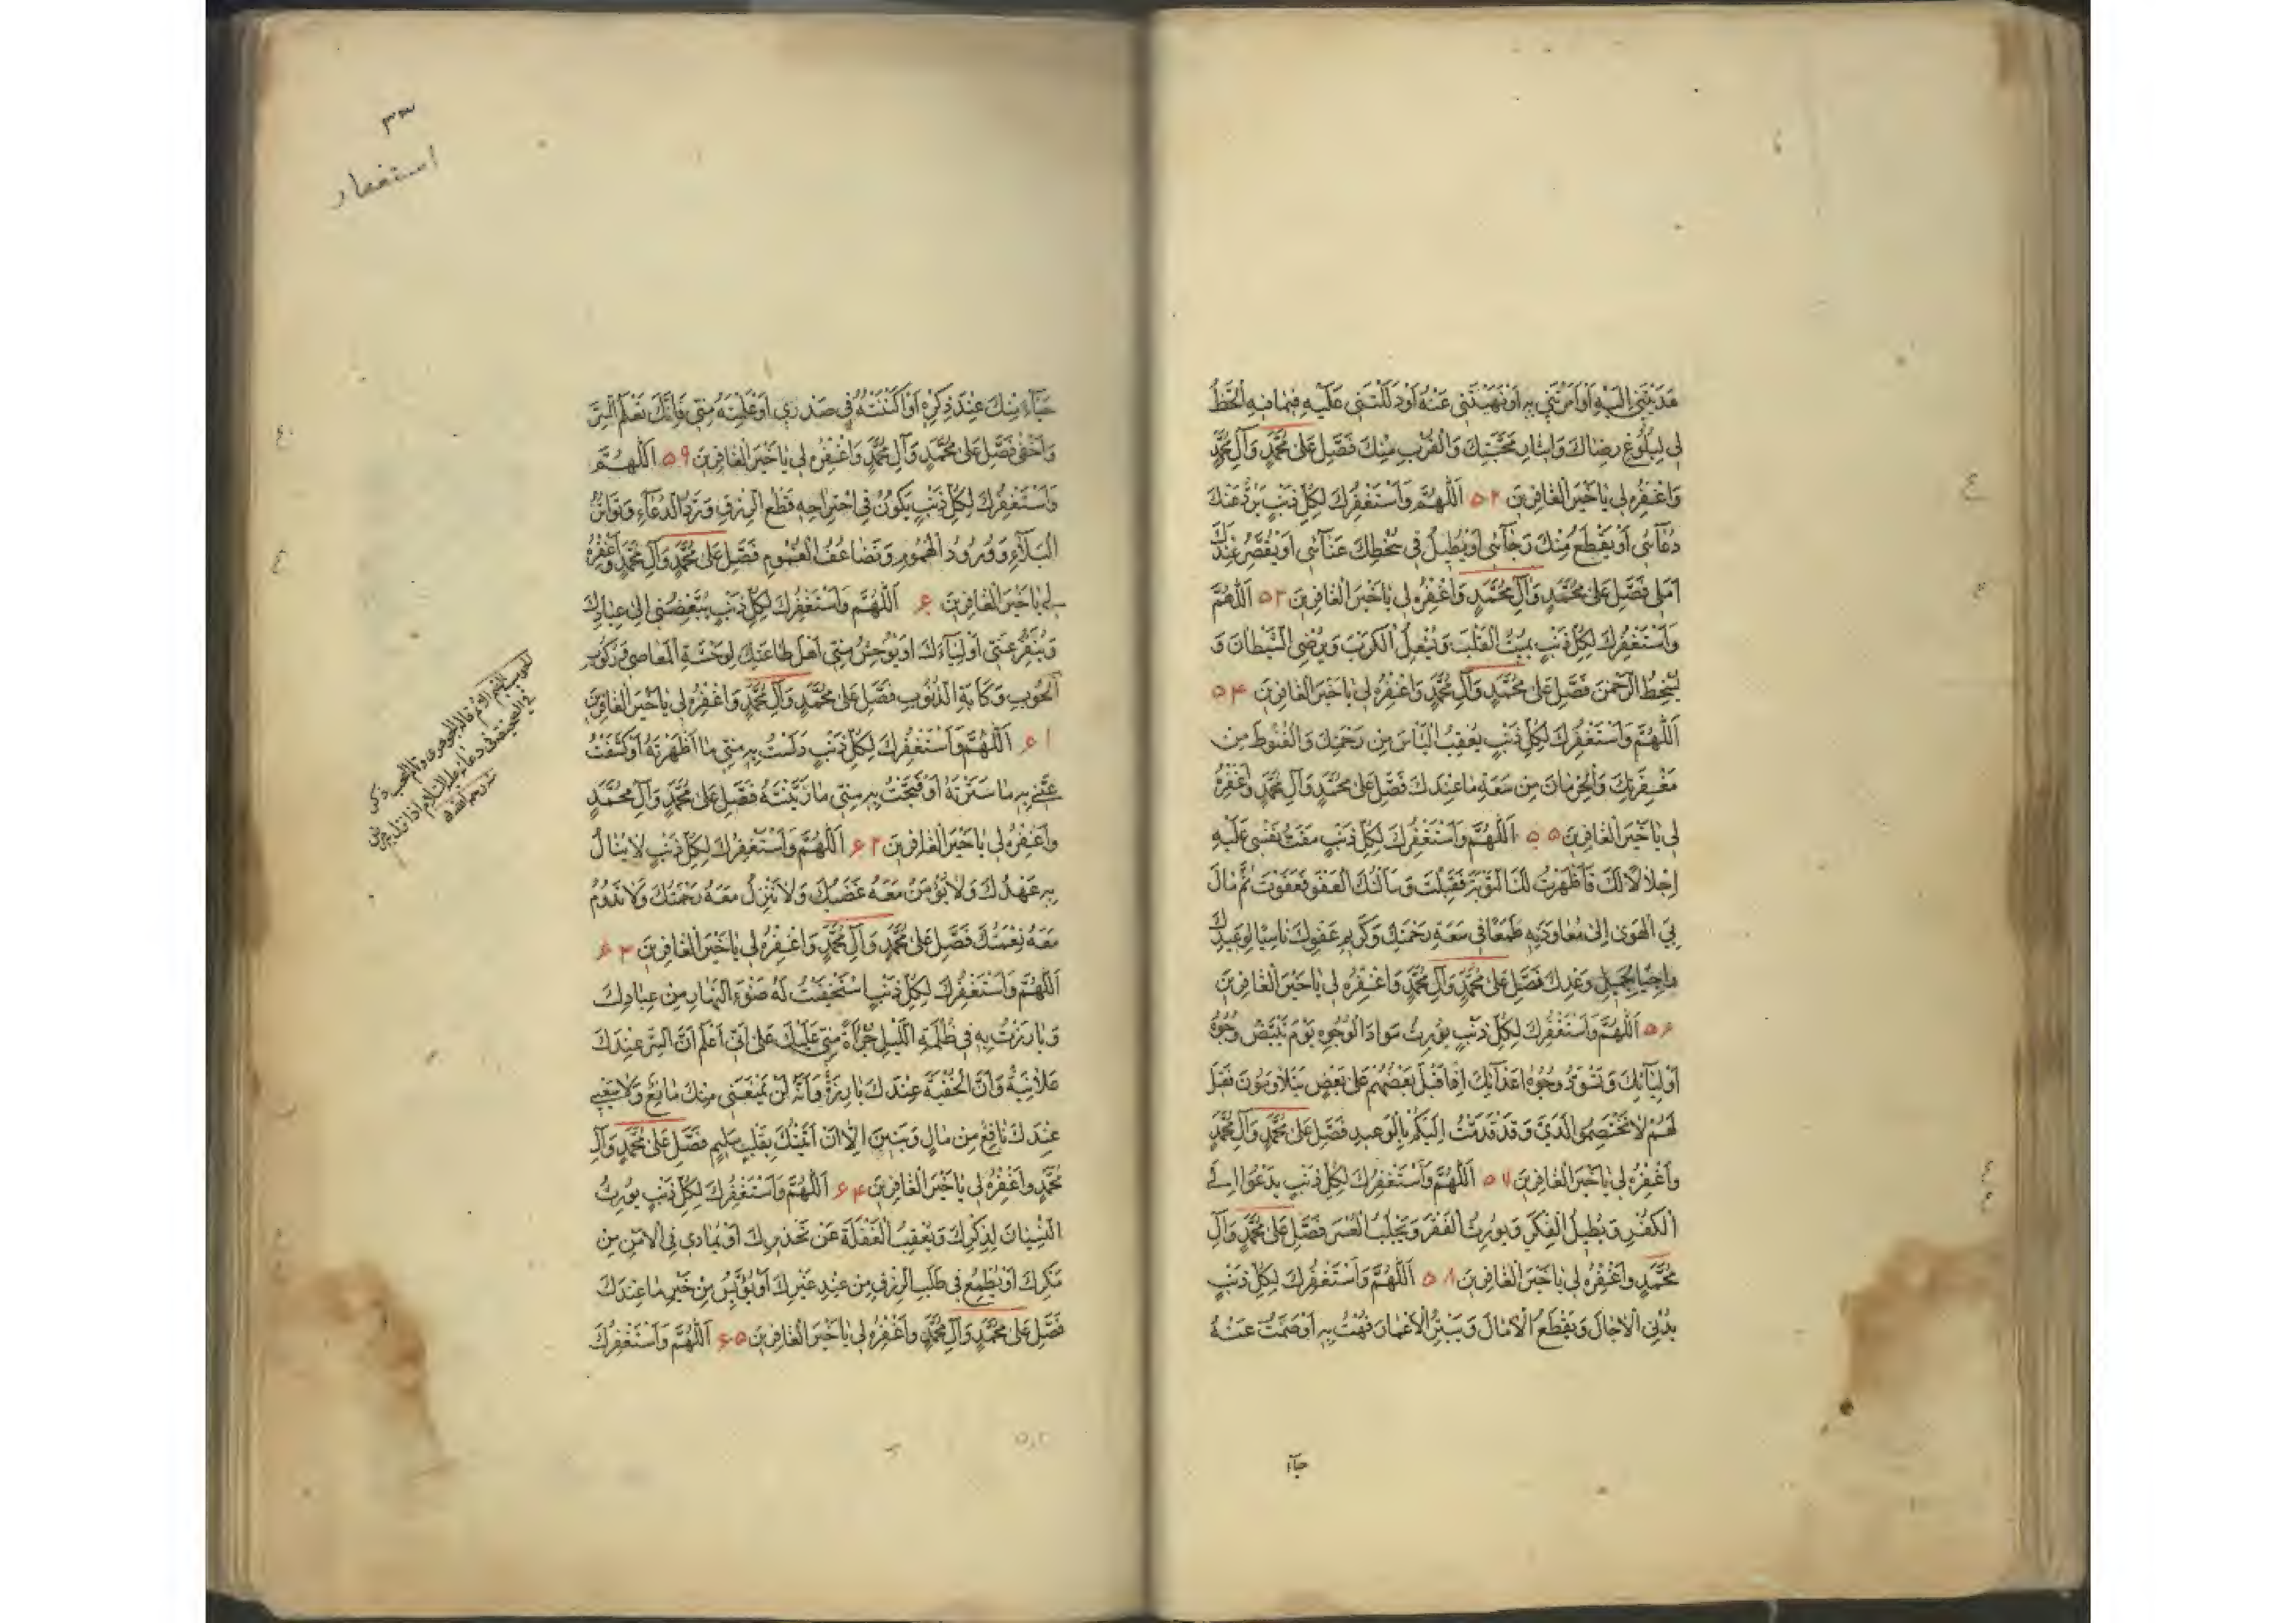 هَدَيْتَنِي إِلَيْهِ أَوْ أَمَرْتَنِي بِهِ أَوْ نَهَيْتَنِي عَنْهُ أَوْ دَلَلْتَنِي عَلَيْهِ فِيمَا فِيهِ الْحَظُّ
لِي لِبُلُوغِ رِضَاكَ وَإِيثَارِ مَحَبَّتِكَ وَالْقُرْبِ مِنْكَ فَصَلِّ عَلَى مُحَمَّدٍ وَآلِ مُحَمَّدٍ
وَاغْفِرْهُ لِي يَا خَيْرَ الْغَافِرِينَ ۵۲ اَللّهُمَّ وَأَسْتَغْفِرُكَ لِكُلِّ ذَنْبٍ يَرُدُّ عَنْكَ
دُعَائِي أَوْ يَقْطَعُ مِنْكَ رَجَائِي أَوْ يُطِيلُ فِي سَخَطِكَ عَنَائِي أَوْ يُقَصِّرُ عِنْدَكَ
أَمَلِي فَصَلِّ عَلَى مُحَمَّدٍ وَآلِ مُحَمَّدٍ وَاغْفِرْهُ لِي يَا خَيْرَ الْغَافِرِينَ ۵۳ اَللّهُمَّ
وَأَسْتَغْفِرُكَ لِكُلِّ ذَنْبٍ يُمِيتُ الْقَلْبَ وَيُشْعِلُ الْكَرْبَ وَيُرْضِي الشَّيْطَانَ وَ
يُسْخِطُ الرَّحْمنَ فَصَلِّ عَلَى مُحَمَّدٍ وَآلِ مُحَمَّدٍ وَاغْفِرْهُ لِي يَا خَيْرَ الْغَافِرِينَ ۵۴
اَللّهُمَّ وَأَسْتَغْفِرُكَ لِكُلِّ ذَنْبٍ يُعْقِبُ الْيَأْسَ مِنْ رَحْمَتِكَ وَالْقُنُوطَ مِنْ
مَغْفِرَتِكَ وَالْحِرْمَانَ مِنْ سَعَةِ مَا عِنْدَكَ فَصَلِّ عَلَى مُحَمَّدٍ وَآلِ مُحَمَّدٍ وَاغْفِرْهُ
لِي يَا خَيْرَ الْغَافِرِينَ ۵۵ اَللّهُمَّ وَأَسْتَغْفِرُكَ لِكُلِّ ذَنْبٍ مَقَتُّ نَفْسِي عَلَيْهِ
إِجْلَالًا لَكَ فَأَظْهَرْتُ لَكَ التَّوْبَةَ فَقَبِلْتَ وَسَأَلْتُكَ الْعَفْوَ فَعَفَوْتَ ثُمَّ مَالَ
بِيَ الْهَوَى إِلَى مُعَاوَدَتِهِ طَمَعًا فِي سَعَةِ رَحْمَتِكَ وَكَرِيمِ عَفْوِكَ نَاسِيًا لِوَعِيدِكَ
رَاجِيًا لِجَمِيلِ وَعْدِكَ فَصَلِّ عَلَى مُحَمَّدٍ وَآلِ مُحَمَّدٍ وَاغْفِرْهُ لِي يَا خَيْرَ الْغَافِرِينَ
۵۶ اَللّهُمَّ وَأَسْتَغْفِرُكَ لِكُلِّ ذَنْبٍ يُورِثُ سَوَادَ الْوُجُوهِ يَوْمَ تَبْيَضُّ وُجُوهُ
أَوْلِيَائِكَ وَتَسْوَدُّ وُجُوهُ أَعْدَائِكَ إِذَا أَقْبَلَ بَعْضُهُمْ عَلَى بَعْضٍ يَتَلَاوَمُونَ فَقِيلَ
لَهُمْ لَا تَخْتَصِمُوا لَدَيَّ وَقَدْ قَدَّمْتُ إِلَيْكُمْ بِالْوَعِيدِ فَصَلِّ عَلَى مُحَمَّدٍ وَآلِ مُحَمَّدٍ
وَاغْفِرْهُ لِي يَا خَيْرَ الْغَافِرِينَ ۵۷ اَللّهُمَّ وَأَسْتَغْفِرُكَ لِكُلِّ ذَنْبٍ يَدْعُو إِلَى
الْكُفْرِ وَيُطِيلُ الْفِكْرَ وَيُورِثُ الْفَقْرَ وَيَجْلِبُ الْعُسْرَ فَصَلِّ عَلَى مُحَمَّدٍ وَآلِ
مُحَمَّدٍ وَاغْفِرْهُ لِي يَا خَيْرَ الْغَافِرِينَ ۵۸ اَللّهُمَّ وَأَسْتَغْفِرُكَ لِكُلِّ ذَنْبٍ
يُدْنِي الْآجَالَ وَيَقْطَعُ الْآمَالَ وَيَبْتُرُ الْأَعْمَارَ فُهْتُ بِهِ أَوْ صَمَتُّ عَنْهُ
حيآء
٣٣
استغفار
حَيَاءً مِنْكَ عِنْدَ ذِكْرِهِ أَوْ أَكْنَنْتُهُ فِي صَدْرِي أَوْ عَلِمْتَهُ مِنِّي فَإِنَّكَ تَعْلَمُ السِّرَّ
وَأَخْفَى فَصَلِّ عَلَى مُحَمَّدٍ وَآلِ مُحَمَّدٍ وَاغْفِرْهُ لِي يَا خَيْرَ الْغَافِرِينَ ۵۹ اَللّهُمَّ
وَأَسْتَغْفِرُكَ لِكُلِّ ذَنْبٍ يَكُونُ فِي اجْتِرَاحِهِ قَطْعُ الرِّزْقِ وَرَدُّ الدُّعَاءِ وَتَوَاتُرُ
الْبَلَاءِ وَوُرُودُ الْهُمُومِ وَتَضَاعُفُ الْغُمُومِ فَصَلِّ عَلَى مُحَمَّدٍ وَآلِ مُحَمَّدٍ وَاغْفِرْهُ
لِي يَا خَيْرَ الْغَافِرِينَ ۶۰ اَللّهُمَّ وَأَسْتَغْفِرُكَ لِكُلِّ ذَنْبٍ يُبَغِّضُنِي إِلَى عِبَادِكَ
وَيُنَفِّرُ عَنِّي أَوْلِيَاءَكَ أَوْ يُوحِشُ مِنِّي أَهْلَ طَاعَتِكَ لِوَحْشَةِ الْمَعَاصِي وَرُكُوبِ
الْحُوبِ وَكَآبَةِ الذُّنُوبِ فَصَلِّ عَلَى مُحَمَّدٍ وَآلِ مُحَمَّدٍ وَاغْفِرْهُ لِي يَا خَيْرَ الْغَافِرِينَ
۶۱ اَللّهُمَّ وَأَسْتَغْفِرُكَ لِكُلِّ ذَنْبٍ دَلَّسْتُ بِهِ مِنِّي مَا أَظْهَرْتَهُ أَوْ كَشَفْتُ
عَنِّي بِهِ مَا سَتَرْتَهُ أَوْ قَبَّحْتُ بِهِ مِنِّي مَا زَيَّنْتَهُ فَصَلِّ عَلَى مُحَمَّدٍ وَآلِ مُحَمَّدٍ
وَاغْفِرْهُ لِي يَا خَيْرَ الْغَافِرِينَ ۶۲ اَللّهُمَّ وَأَسْتَغْفِرُكَ لِكُلِّ ذَنْبٍ لَا يُنَالُ
بِهِ عَهْدُكَ وَلَا يُؤْمَنُ مَعَهُ غَضَبُكَ وَلَا تَنْزِلُ مَعَهُ رَحْمَتُكَ وَلَا تَدُومُ
مَعَهُ نِعْمَتُكَ فَصَلِّ عَلَى مُحَمَّدٍ وَآلِ مُحَمَّدٍ وَاغْفِرْهُ لِي يَا خَيْرَ الْغَافِرِينَ ۶۳
اَللّهُمَّ وَأَسْتَغْفِرُكَ لِكُلِّ ذَنْبٍ اسْتَخْفَيْتُ لَهُ ضَوْءَ النَّهَارِ مِنْ عِبَادِكَ
وَبَارَزْتُ بِهِ فِي ظُلْمَةِ اللَّيْلِ جُرْأَةً مِنِّي عَلَيْكَ عَلَى أَنِّي أَعْلَمُ أَنَّ السِّرَّ عِنْدَكَ
عَلَانِيَةٌ وَأَنَّ الْخَفِيَّةَ عِنْدَكَ بَارِزَةٌ وَأَنَّهُ لَنْ يَمْنَعَنِي مِنْكَ مَانِعٌ وَلَا يَنْفَعُنِي
عِنْدَكَ نَافِعٌ مِنْ مَالٍ وَبَنِينَ إِلَّا أَنْ أَتَيْتُكَ بِقَلْبٍ سَلِيمٍ فَصَلِّ عَلَى مُحَمَّدٍ وَآلِ
مُحَمَّدٍ وَاغْفِرْهُ لِي يَا خَيْرَ الْغَافِرِينَ ۶۴ اَللّهُمَّ وَأَسْتَغْفِرُكَ لِكُلِّ ذَنْبٍ يُورِثُ
النِّسْيَانَ لِذِكْرِكَ وَيُعْقِبُ الْغَفْلَةَ عَنْ تَحْذِيرِكَ أَوْ يُمَادِي فِي الْأَمْنِ مِنْ
مَكْرِكَ أَوْ يُطْمِعُ فِي طَلَبِ الرِّزْقِ مِنْ عِنْدِ غَيْرِكَ أَوْ يُؤْيِسُ مِنْ خَيْرِ مَا عِنْدَكَ
فَصَلِّ عَلَى مُحَمَّدٍ وَآلِ مُحَمَّدٍ وَاغْفِرْهُ لِي يَا خَيْرَ الْغَافِرِينَ ۶۵ اَللّهُمَّ وَأَسْتَغْفِرُكَ